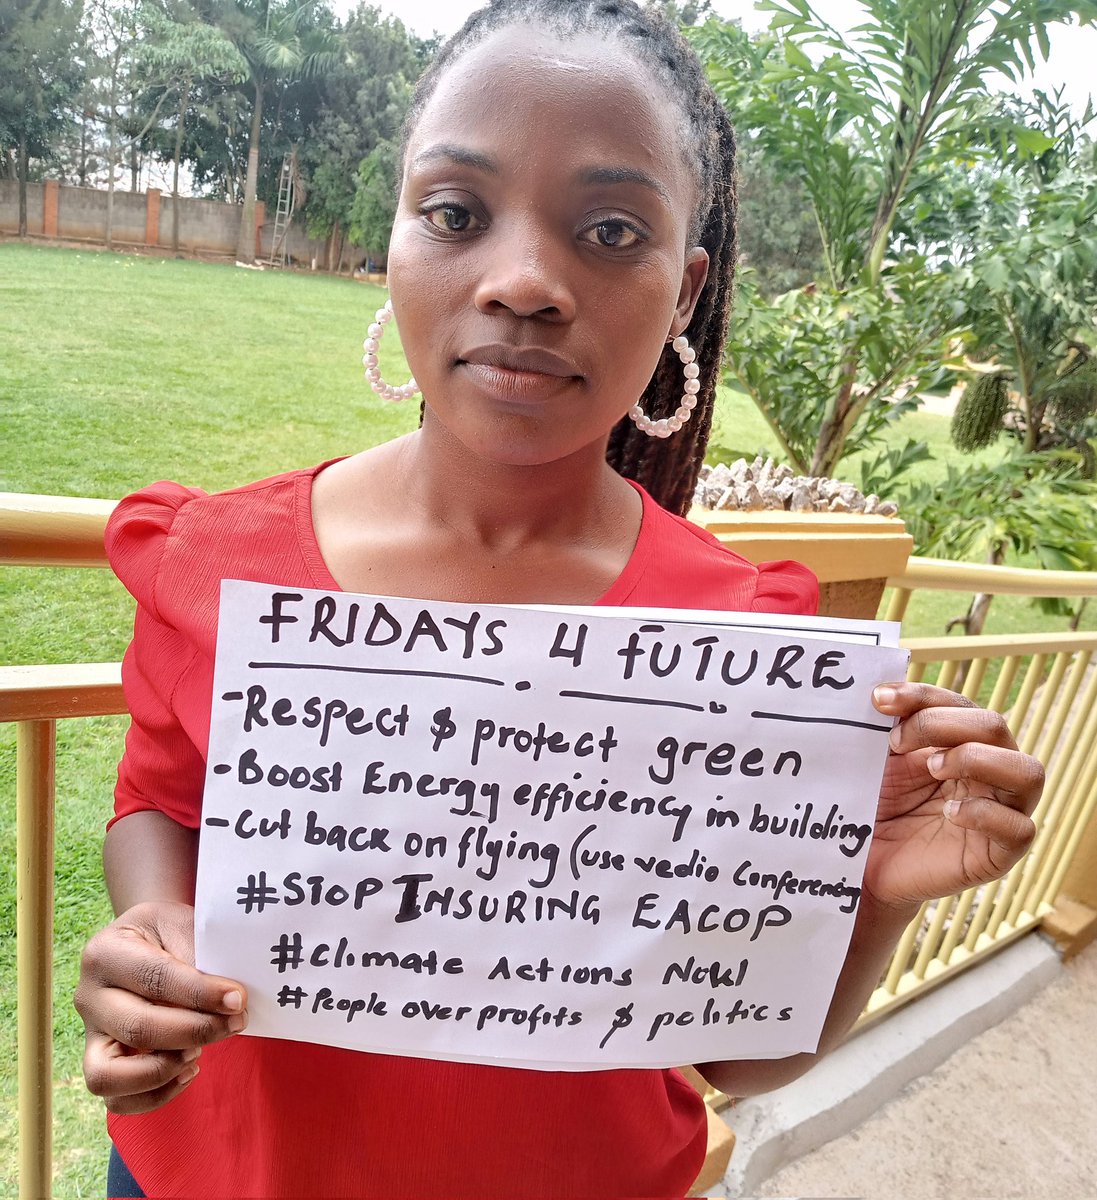 FRIDAYS 4 FUTURE
-Respect & protect green
-Boost Energy efficiency in building
-Cut back on flying (use vedio Conferencing
#STOP INSURING EACOP
#Climate Actions Now!
#People over profits & politics